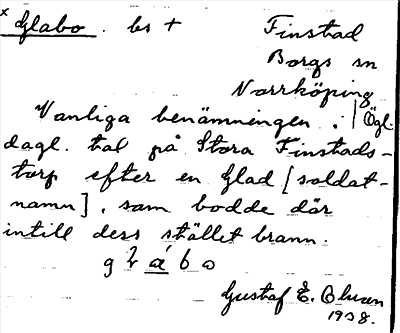 x Glabo. bs +
Finstad
Borgs sn
Norrköping
Ögl.
Vanliga benämningen i
dagl. tal på Stora Finstads-
torp efter en Glad [soldat-
namn], som bodde där
intill dess stället brann.
Gustaf E.
1938.